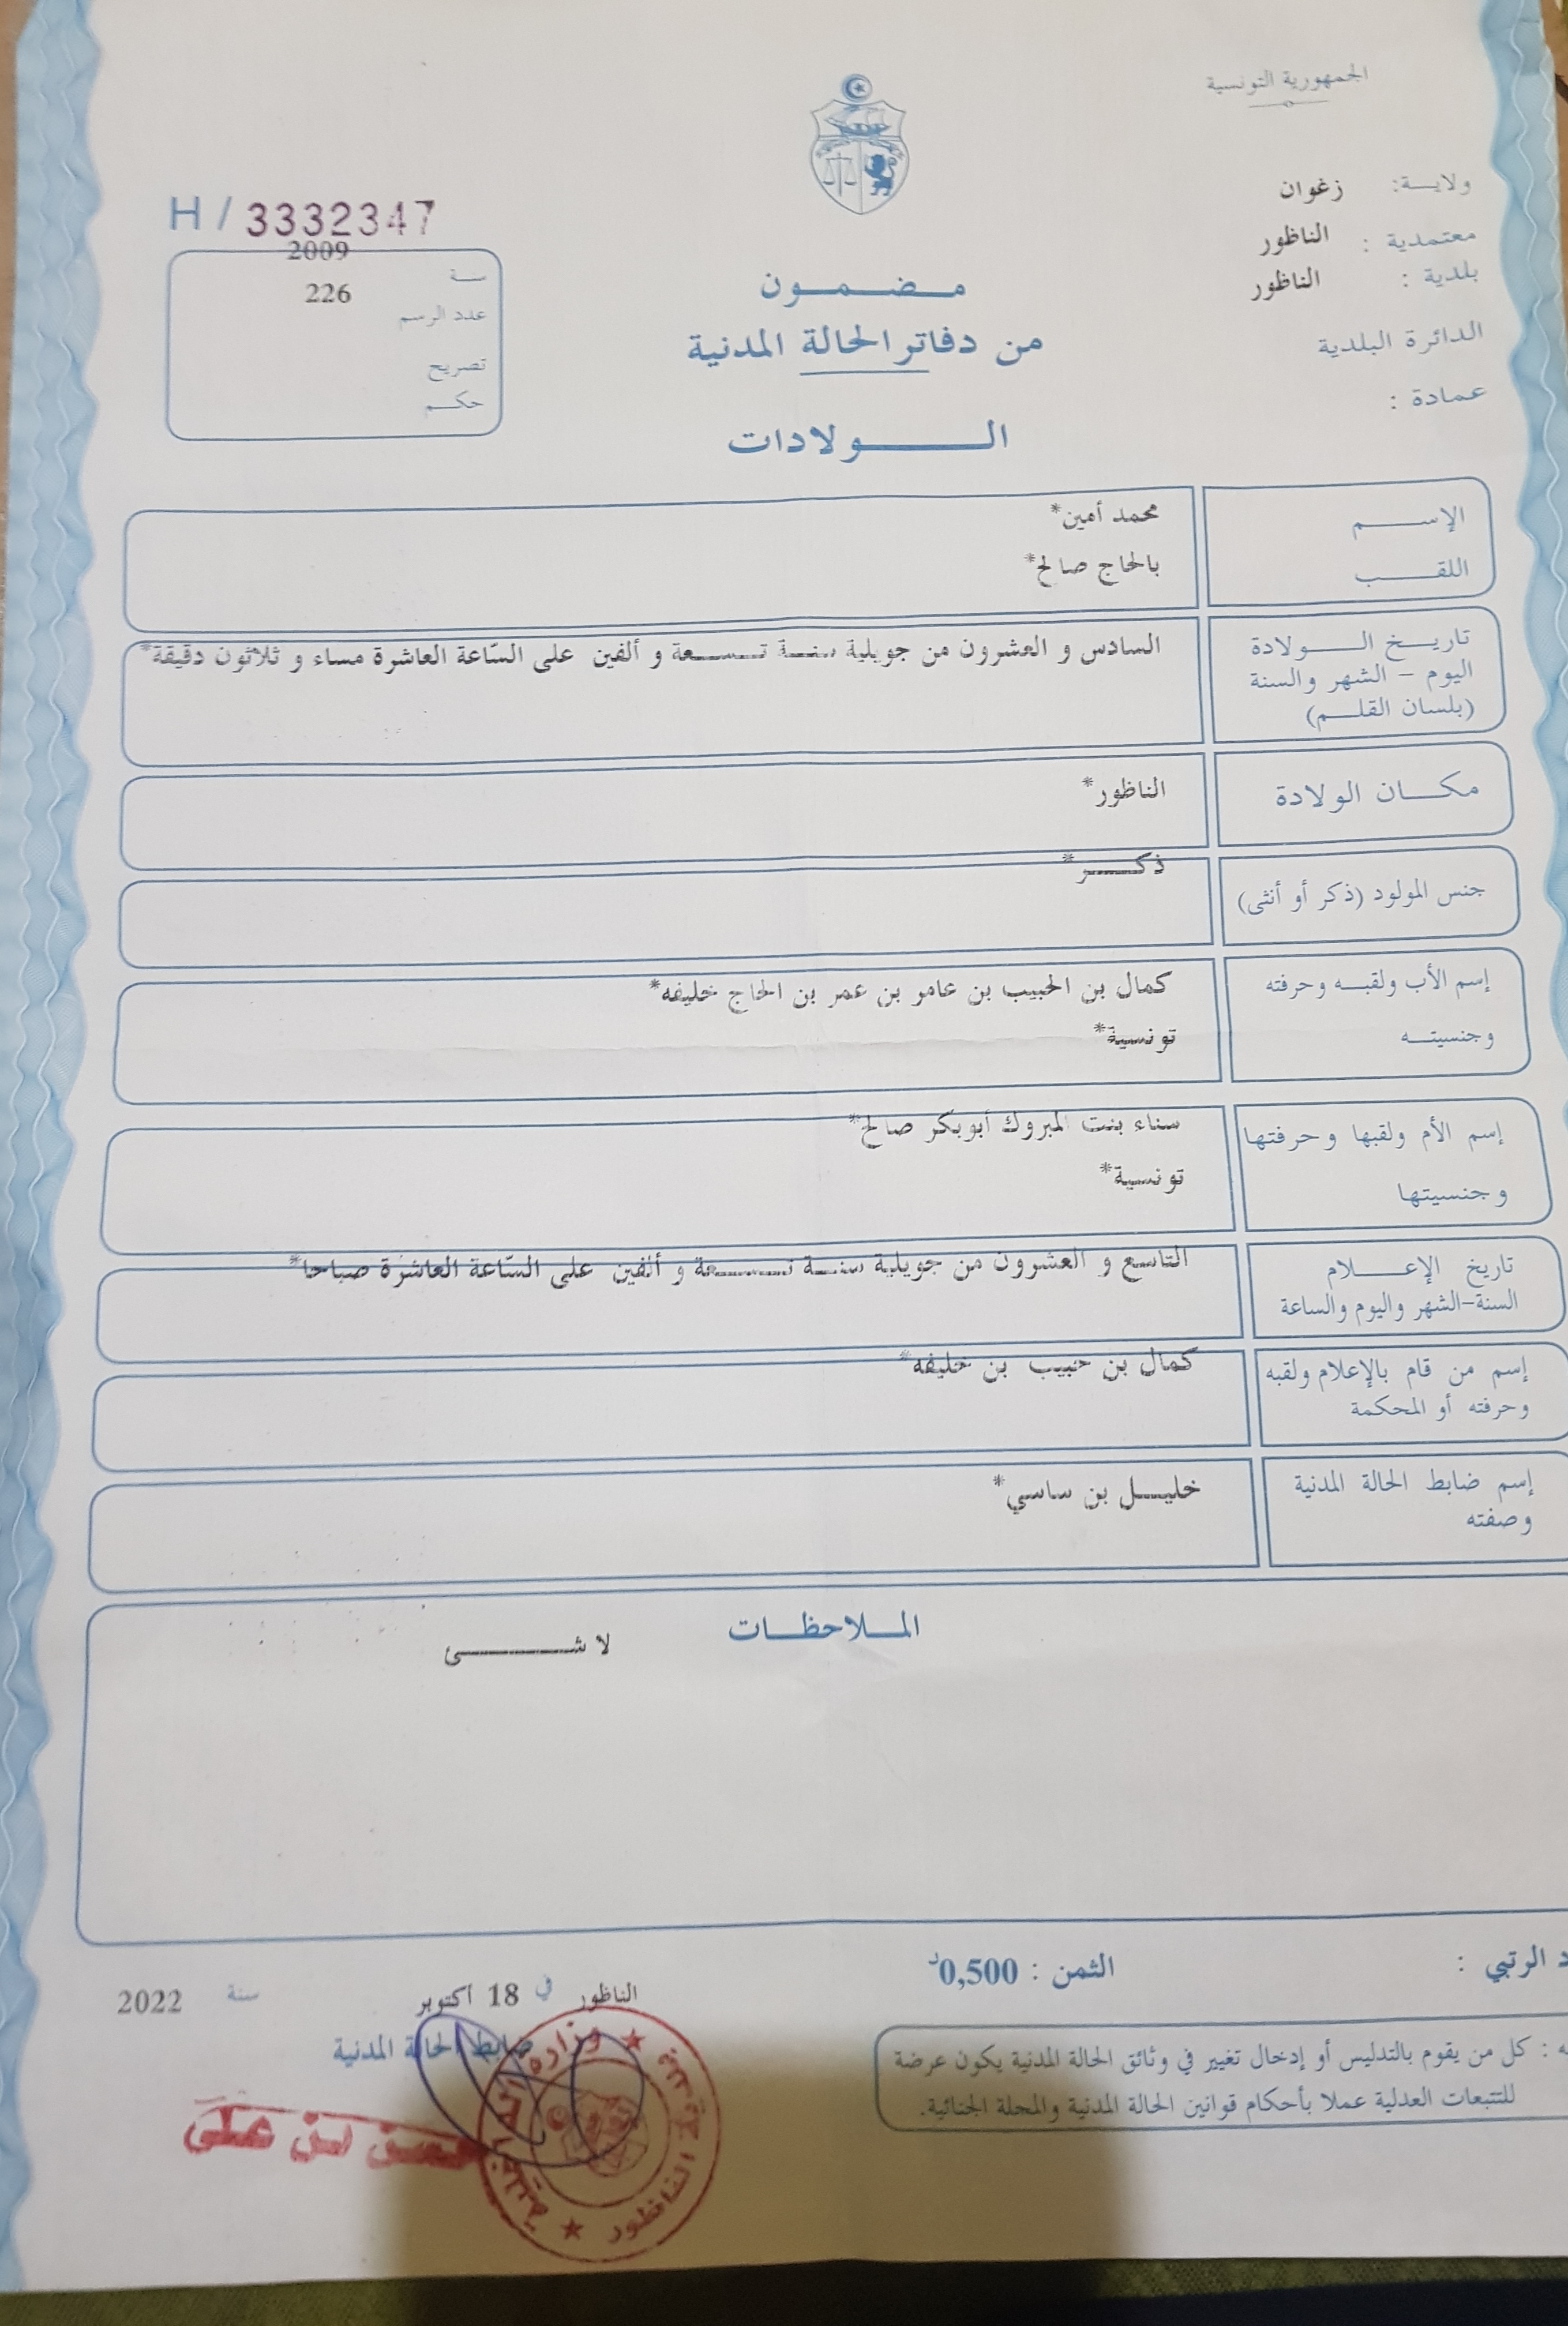 الجمهورية التونسية
ولاية: زغوان
معتمدية : الناظور
بلدية : الناظور
الدائرة البلدية
عمادة :
H / 3332347
سنة 2009
عدد الرسم 226
تصريح
حكم
مضمون
من دفاتر الحالة المدنية
الولادات
الإسم محمد أمين*
اللقب بالحاج صالح*
تاريخ الولادة
اليوم – الشهر والسنة
(بلسان القلم)
السادس و العشرون من جويلية سنة تسعة و ألفين على السّاعة العاشرة مساء و ثلاثون دقيقة*
مكان الولادة الناظور*
جنس المولود (ذكر أو أنثى) ذكر*
إسم الأب ولقبه وحرفته كمال بن الحبيب بن عامر بن عمر بن الحاج خليفه*
وجنسيته تونسية*
إسم الأم ولقبها وحرفتها سناء بنت المبروك أبوبكر صالح*
وجنسيتها تونسية*
تاريخ الإعلام
السنة–الشهر واليوم والساعة
التاسع و العشرون من جويلية سنة تسعة و ألفين على السّاعة العاشرة صباحا*
إسم من قام بالإعلام ولقبه
وحرفته أو المحكمة
كمال بن حبيب بن خليفه*
إسم ضابط الحالة المدنية
وصفته
خليل بن ساسي*
الملاحظات
لا شئ
الرتبي :
الثمن : 0,500د
الناظور في 18 أكتوبر سنة 2022
ضابط الحالة المدنية
: كل من يقوم بالتدليس أو إدخال تغيير في وثائق الحالة المدنية يكون عرضة
للتتبعات العدلية عملا بأحكام قوانين الحالة المدنية والمجلة الجنائية.
بن علي
وزارة الداخلية
بلدية الناظور